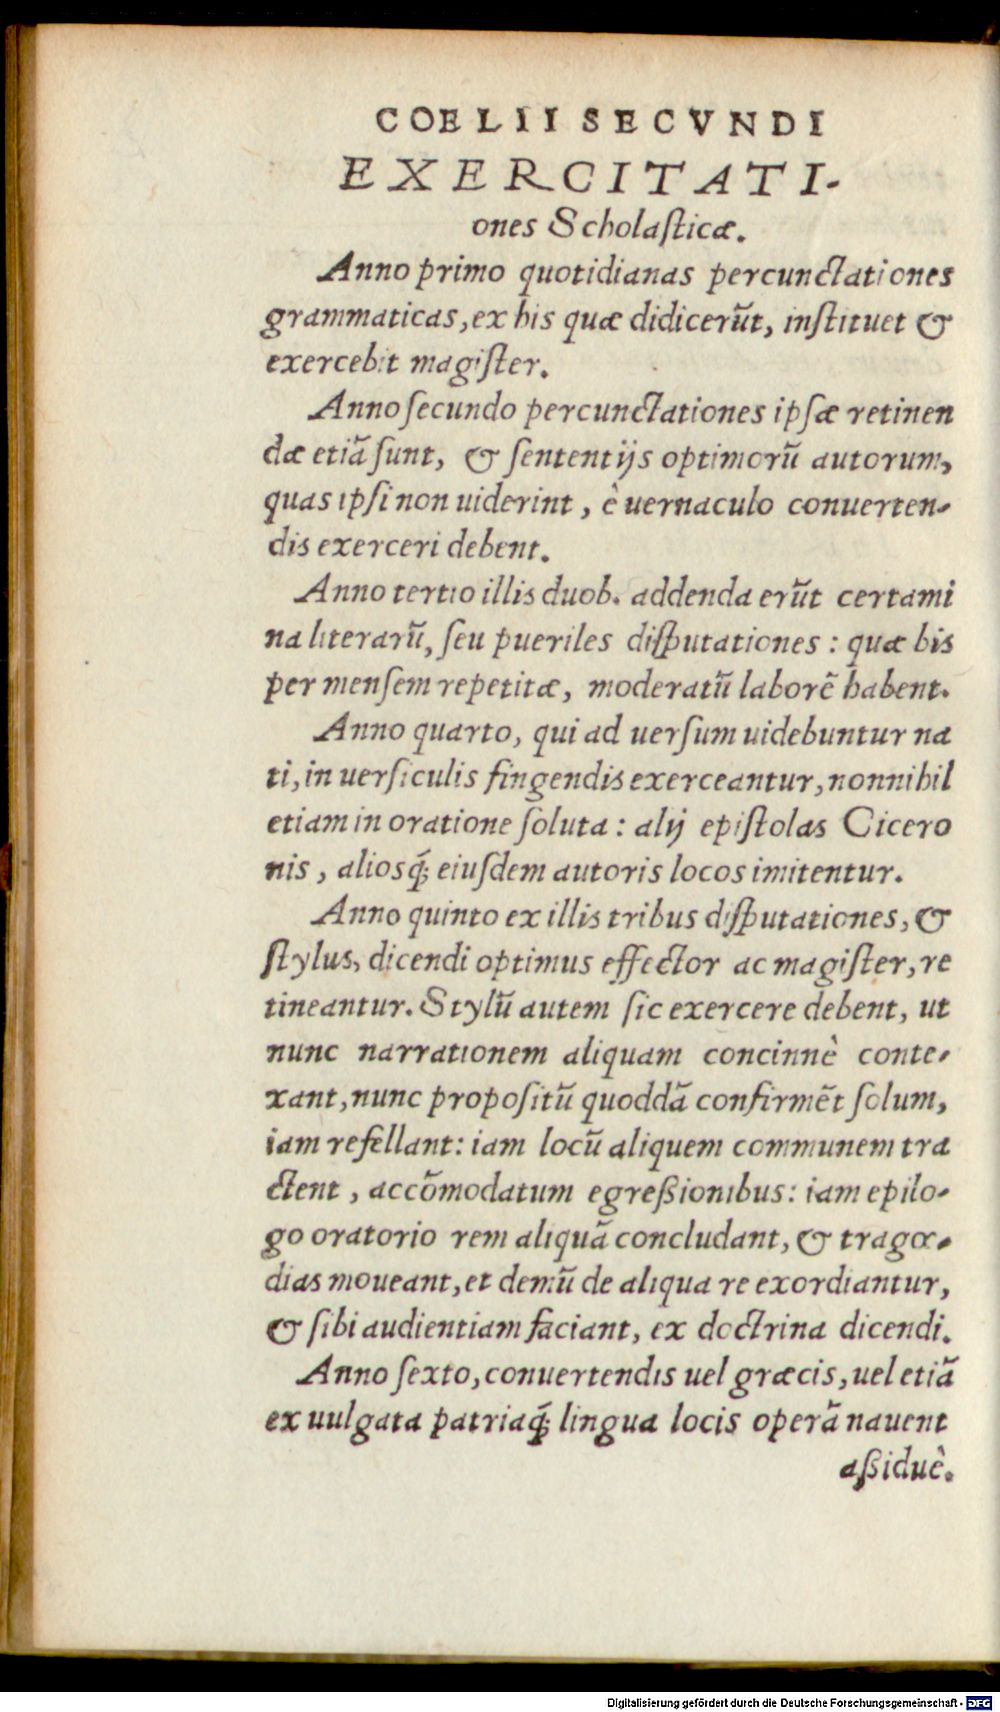 COELII SECVNDI
EXERCITATI-
ones Scholasticæ.
Anno primo quotidianas percunctationes
grammaticas, ex his quæ didicerũt, instituet &
exercebit magister.
Anno secundo percunctationes ipsæ retinen
dæ etiã sunt, & sententijs optimorũ autorum,
quas ipsi non uiderint, è uernaculo conuerten-
dis exerceri debent.
Anno tertio illis duob. addenda erũt certami
na literarũ, seu pueriles disputationes: quæ bis
per mensem repetitæ, moderatũ laborẽ habent.
Anno quarto, qui ad uersum uidebuntur na
ti, in uersiculis fingendis exerceantur, nonnihil
etiam in oratione soluta: alij epistolas Cicero
nis, aliosq́; eiusdem autoris locos imitentur.
Anno quinto ex illis tribus disputationes, &
stylus, dicendi optimus effector ac magister, re
tineantur. Stylũ autem sic exercere debent, ut
nunc narrationem aliquam concinnè conte-
xant, nunc propositũ quoddã confirmẽt solum,
iam refellant: iam locũ aliquem communem tra
ctent, accõmodatum egreßionibus: iam epilo-
go oratorio rem aliquã concludant, & tragœ-
dias moueant, et demũ de aliqua re exordiantur,
& sibi audientiam faciant, ex doctrina dicendi.
Anno sexto, conuertendis uel græcis, uel etiã
ex uulgata patriaq́; lingua locis operã nauent
aßiduè.
Digitalisierung gefördert durch die Deutsche Forschungsgemeinschaft - DFG